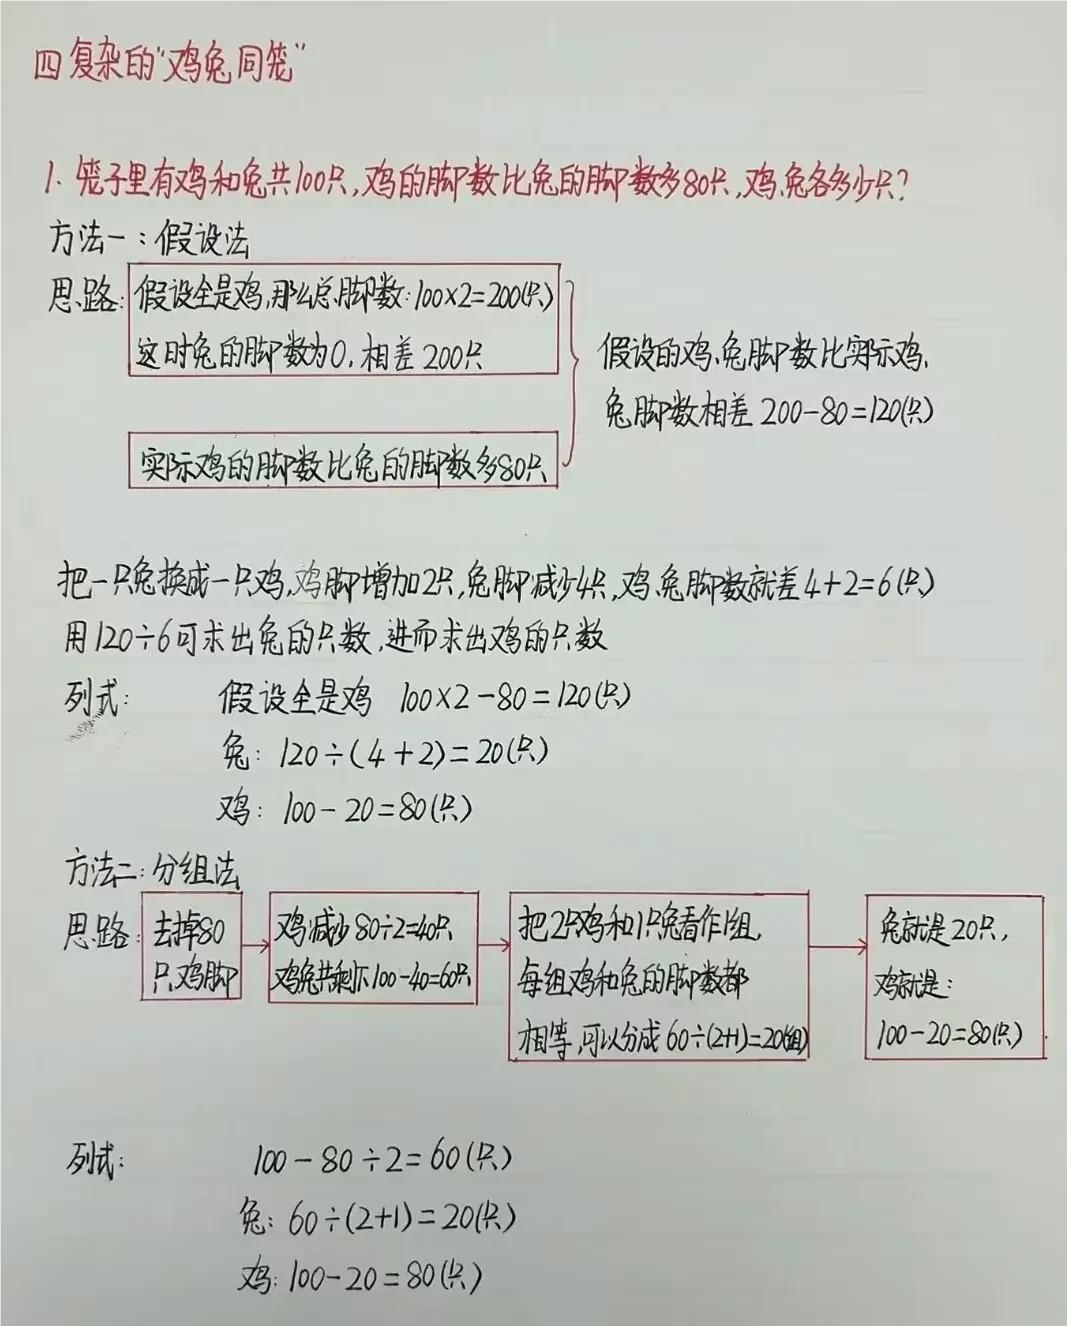 四 复杂的“鸡兔同笼”
1. 笼子里有鸡和兔共100只,鸡的脚数比兔的脚数多80只,鸡、兔各多少只?
方法一:假设法
思路:
假设全是鸡,那么总脚数:100×2=200(只)
这时兔的脚数为0,相差200只
实际鸡的脚数比兔的脚数多80只
假设的鸡、兔脚数比实际鸡、
兔脚数相差 200-80=120(只)
把一只兔换成一只鸡,鸡脚增加2只,兔脚减少4只,鸡、兔脚数就差4+2=6(只)
用120÷6可求出兔的只数,进而求出鸡的只数
列式: 假设全是鸡 100×2-80=120(只)
兔: 120÷(4+2)=20(只)
鸡: 100-20=80(只)
方法二:分组法
思路:
去掉80
只鸡脚
鸡减少80÷2=40只
鸡兔共剩下100-40=60只
把2只鸡和1只兔看作1组,
每组鸡和兔的脚数都
相等,可以分成60÷(2+1)=20(组)
兔就是20只,
鸡就是:
100-20=80(只)
列式: 100-80÷2=60(只)
兔: 60÷(2+1)=20(只)
鸡: 100-20=80(只)